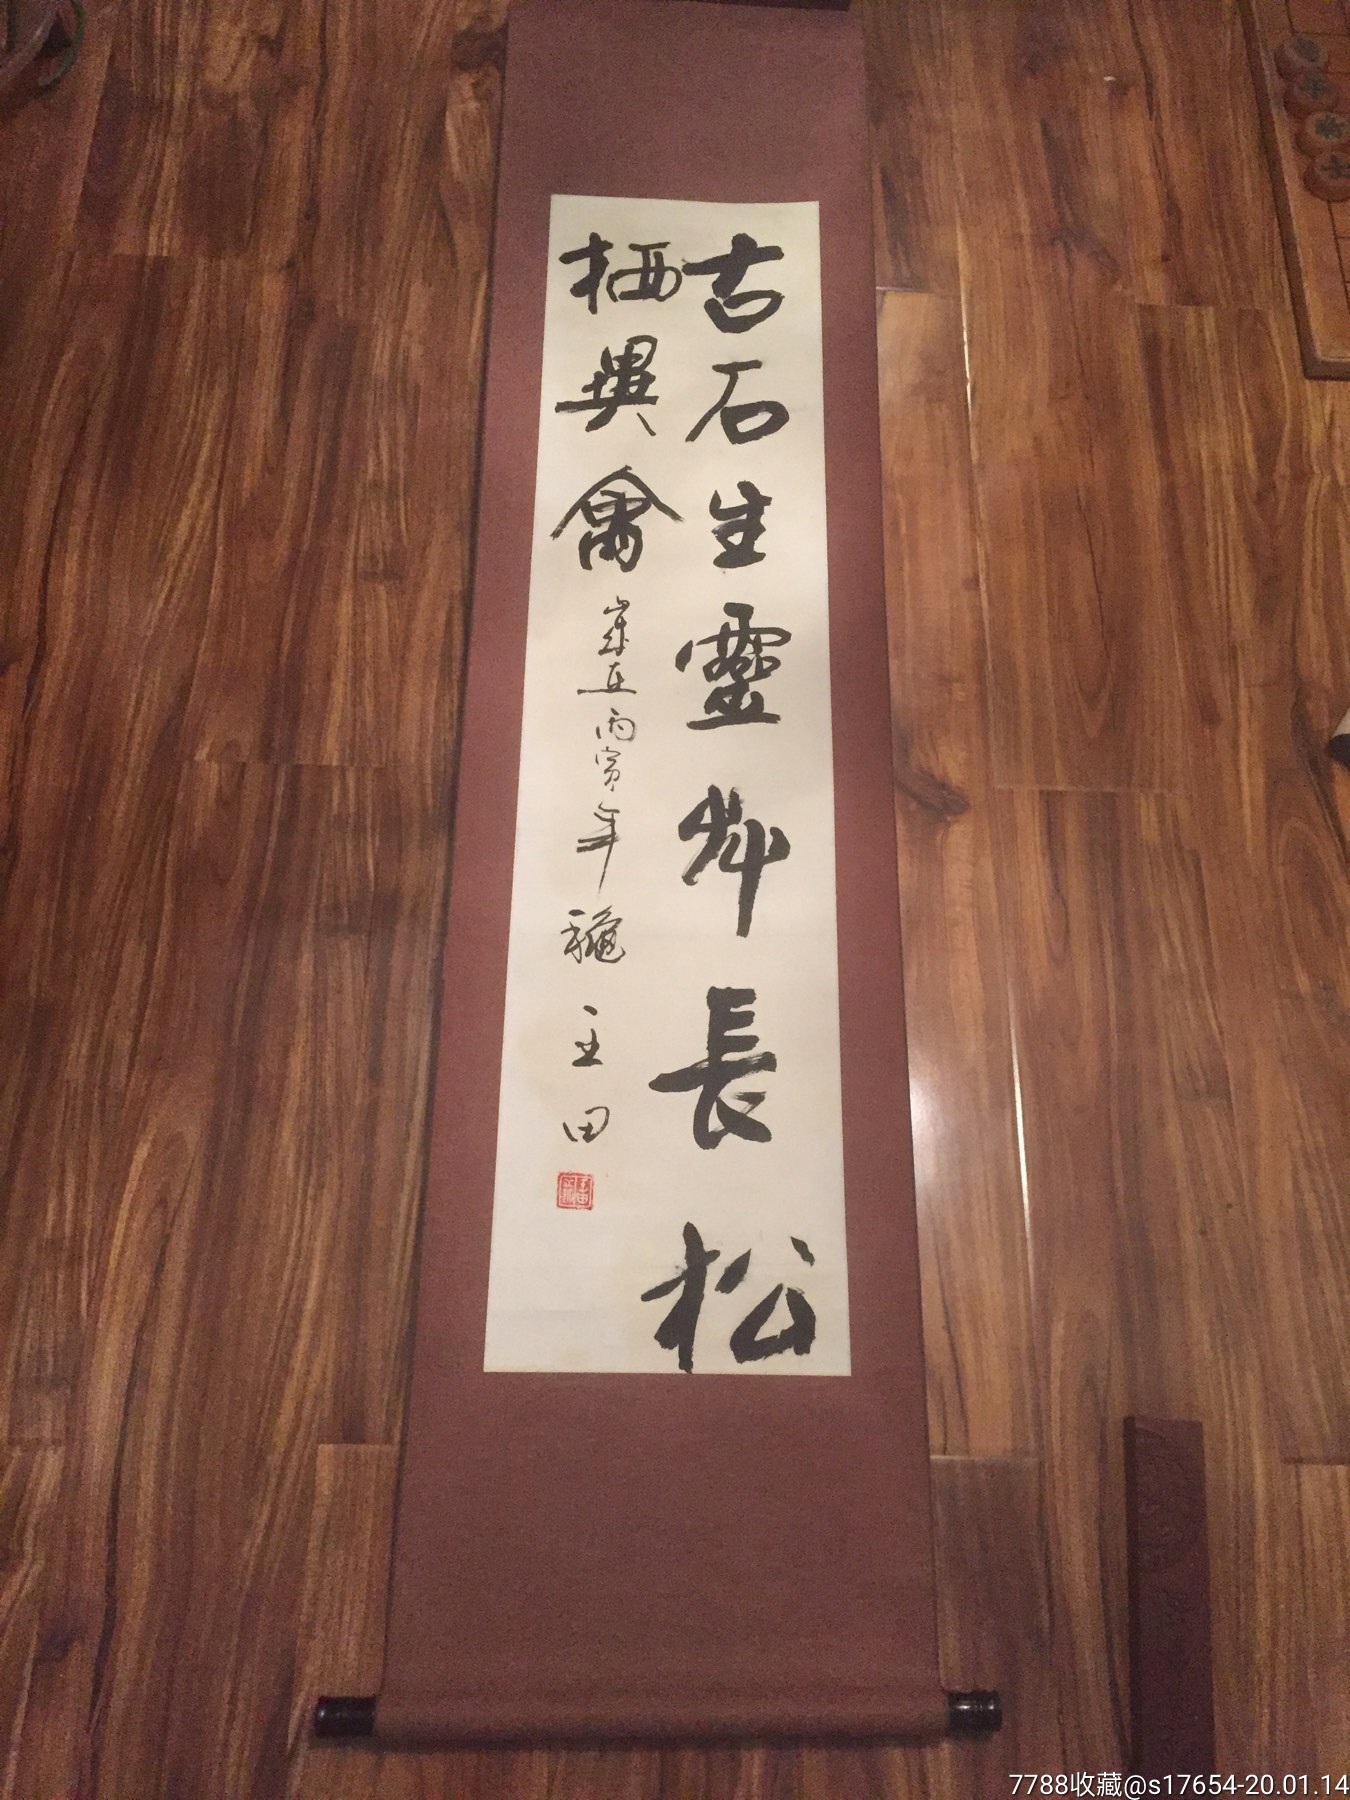 古石生靈草長松
栖異禽 歲在丙寅年 龝 王田
7788收藏@s17654-20.01.14